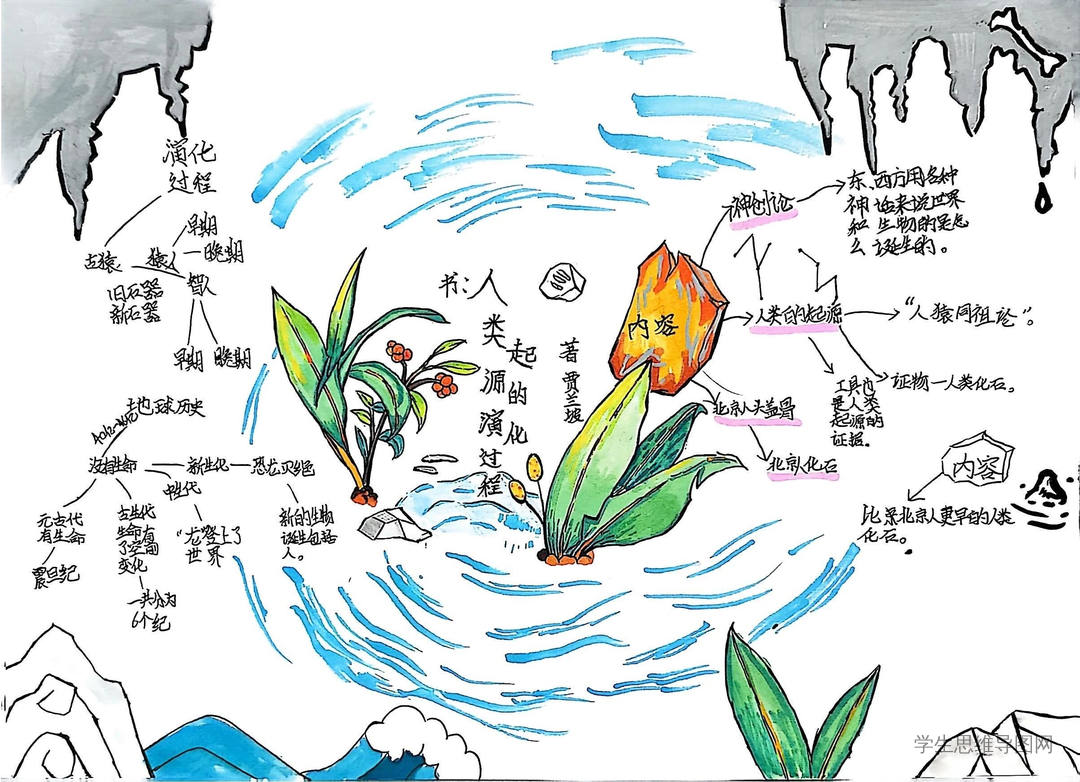 演化
过程
早期
古猿
猿人
晚期
智人
旧石器
新石器
早期
晚期
地球历史
没有生命
新生代
恐龙灭绝
中生代
元古代
有生命
震旦纪
古生代
生命有
了空间
变化
一共分为
6个纪
"龙登上了
世界
新的生物
诞生包括
人。
书:人
类
起
源
的
演
化
过
程
著
贾
兰
坡
内容
神创论
东、西方用各种
神话来说世界
和生物的是怎
么诞生的。
人类的起源
"人猿同祖论"。
工具也
是人类
起源的
证据。
证物一人类化石。
北京人头盖骨
北京人化石
内容
比北京人更早的人类
化石。
学生思维导图网